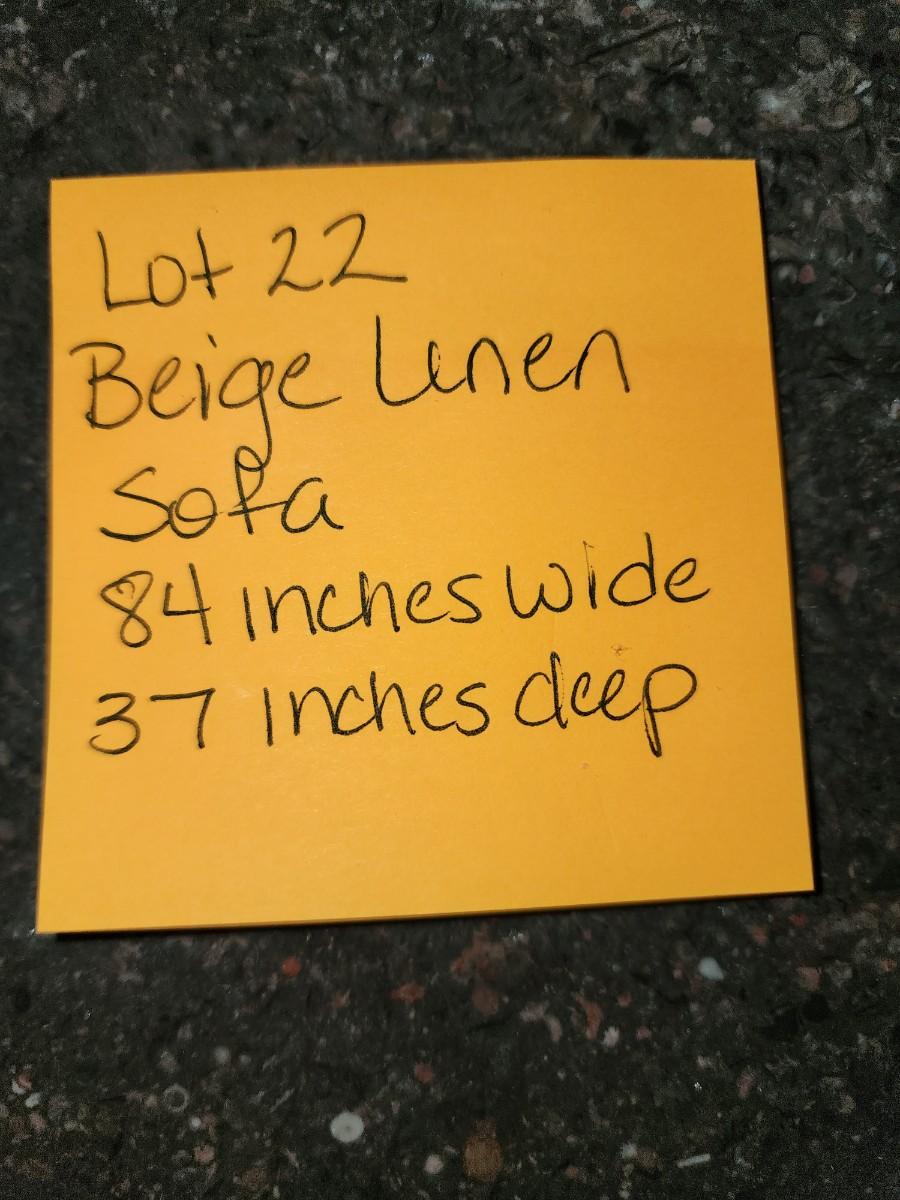 Lot 22
Beige Linen
Sofa
84 inches wide
37 inches deep